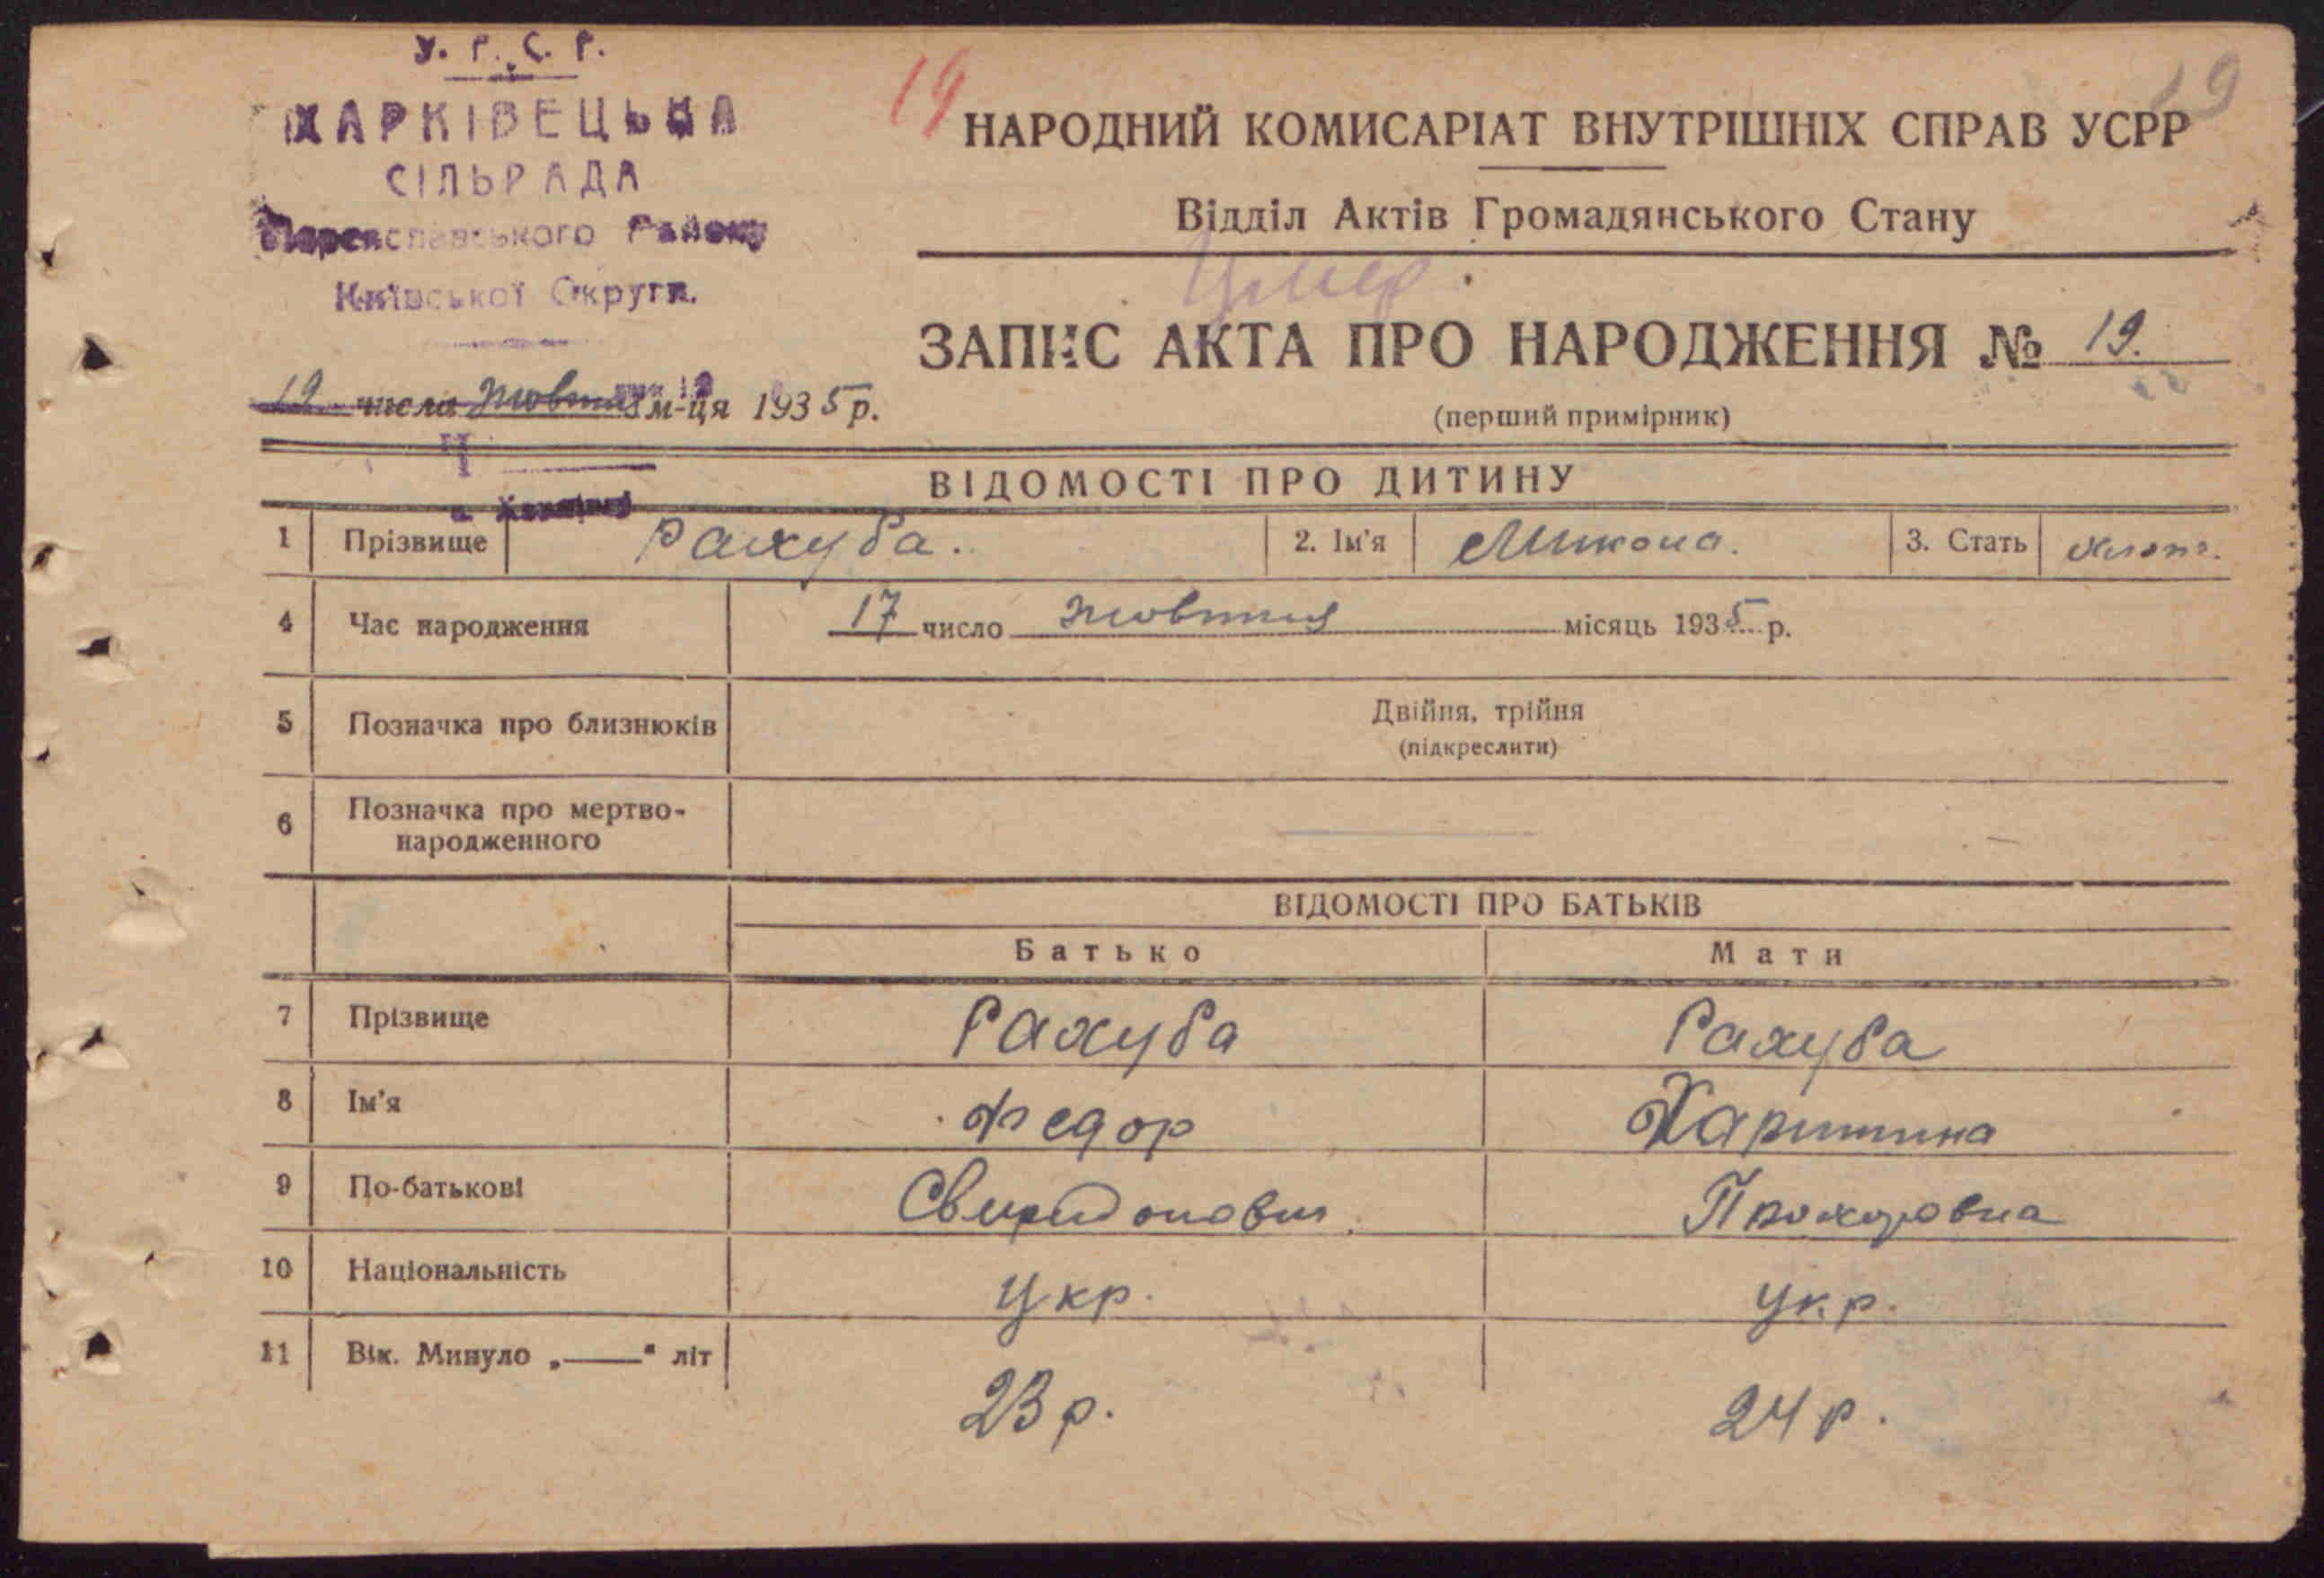 У. Р. С. Р.
ХАРКІВЕЦЬКА
СІЛЬРАДА
Переяславського Району
Київської Округи.
19 19
НАРОДНИЙ КОМИСАРІАТ ВНУТРІШНІХ СПРАВ УСРР
Відділ Актів Громадянського Стану
Умер
ЗАПИС АКТА ПРО НАРОДЖЕННЯ № 19.
(перший примірник)
19 числа жовтня м-ця 1935 р.
ВІДОМОСТІ ПРО ДИТИНУ
1 Прізвище Рахуба. 2. Ім'я Микола. 3. Стать хлоп.
4 Час народження 17 число жовтня місяць 1935 р.
5 Позначка про близнюків Двійня, трійня
(підкреслити)
6 Позначка про мертво-
народженного
ВІДОМОСТІ ПРО БАТЬКІВ
Батько Мати
7 Прізвище Рахуба Рахуба
8 Ім'я Федор Харитина
9 По-батькові Свиридонович Прохоровна
10 Національність Укр. Укр.
11 Вік. Минуло „—“ літ 23 р. 24 р.